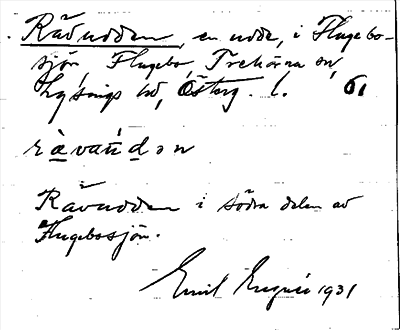 Rävudden, en udde, i Flugebo-
sjön, Flugebo, Trehörna sn,
Lysings hd, Österg. l. 61
rävaudən
Rävudden i södra delen av
Flugebosjön.
Emil 1931